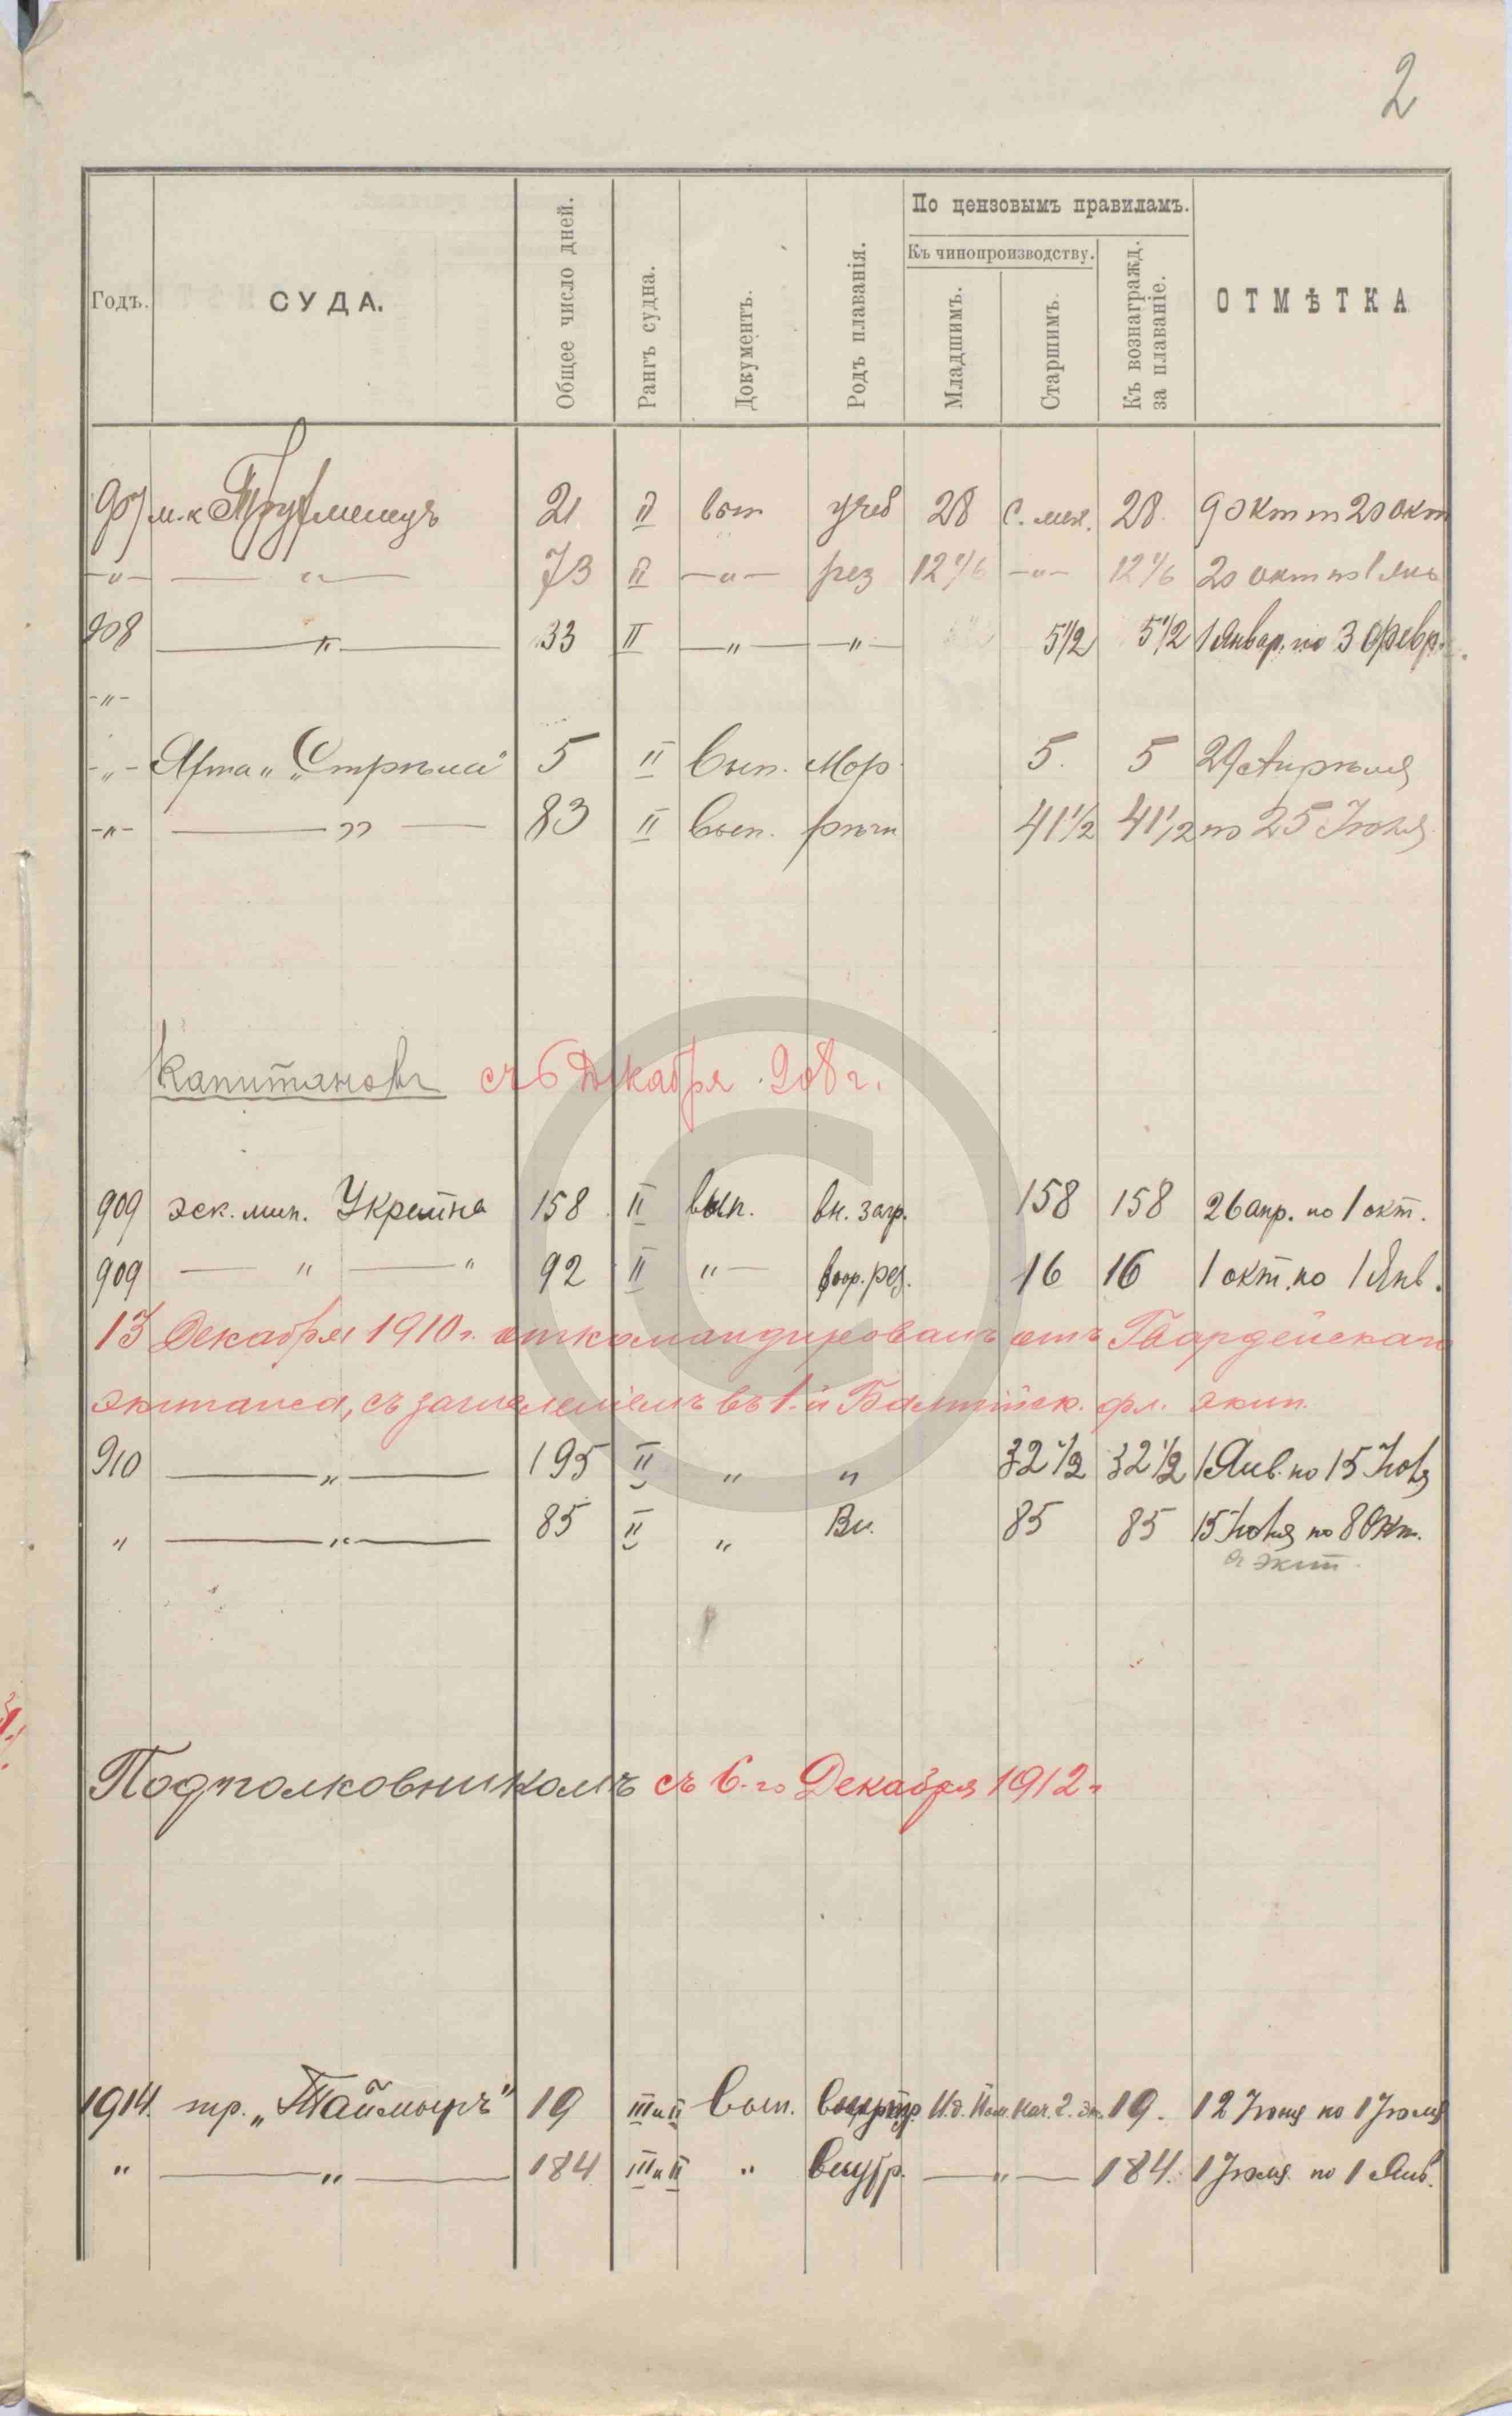 2
По цензовымъ правиламъ.
Къ чинопроизводству.
Годъ. СУДА. Общее число дней. Рангъ судна. Документъ. Родъ плаванія. Младшимъ. Старшимъ. Къ вознагражд. за плаваніе. ОТМѢТКА
907 м.к Трухменецъ 21 II вып учеб 28 с. мех. 28. 9 окт по 20 окт
—"— —"— 73 II —"— рез 12 1/6 —"— 12 1/6 20 окт по 1 янв
908 —"— 33 II —"— —"— 5 1/2 5 1/2 1 Январ. по 3 Февр.
-"-
-"- Яхта „Стрѣла" 5 II вып. Мор. 5. 5 29 Апрѣля
-"- —"— 83 II вып. рѣчн 41 1/2 41 1/2 по 25 Іюля
Капитаномъ съ 6 Декабря 908 г.
909 эск. мин. Украйна 158 II вып. вн. загр. 158 158 26 апр. по 1 окт.
909 —"—" 92 II "— воор. рез. 16 16 1 окт. по 1 Янв.
13 Декабря 1910 г. откомандированъ отъ Гвардейскаго
экипажа, съ зачисленіемъ въ 1-й Балтійск. фл. экип.
910 —"— 195 II " " 32 1/2 32 1/2 1 Янв. по 15 Іюля
" —"— 85 II " Вн. 85 85 15 Іюля по 8 Окт.
Подполковникомъ съ 6-го Декабря 1912 г
1914. тр. „Таймыръ" 19 III и II вып. И.д. Пом. нач. 19. 12 Іюня по 1 Іюля
" —"— 184 III и II " внутр. —"— 184. 1 Іюля по 1 Янв.
©